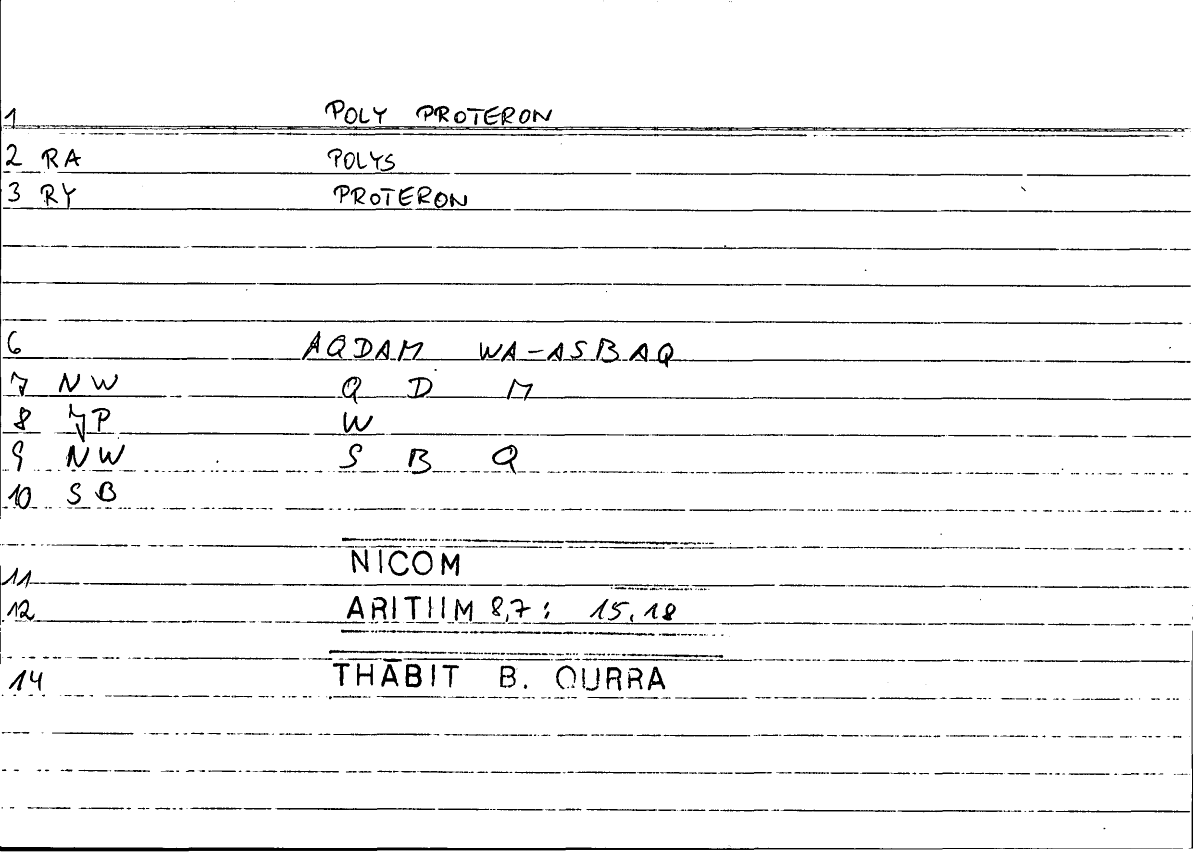 1 POLY PROTERON
2 RA POLYS
3 RY PROTERON
6 AQDAM WA-ASBAQ
7 NW Q D M
8 JP W
9 NW S B Q
10 SB
11 NICOM
12 ARITIIM 8,7: 15.18
14 THĀBIT B. QURRA